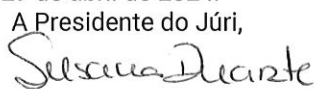 A Presidente do Júri,
Susana Duarte